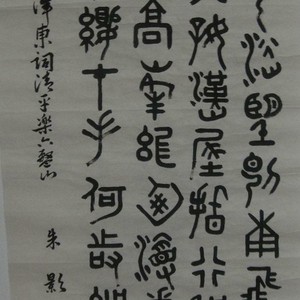 淡望斷南飛
好漢屈指行
高峰紅旗漫
纓在手何時縛
澤東詞清平樂六盤山
朱影